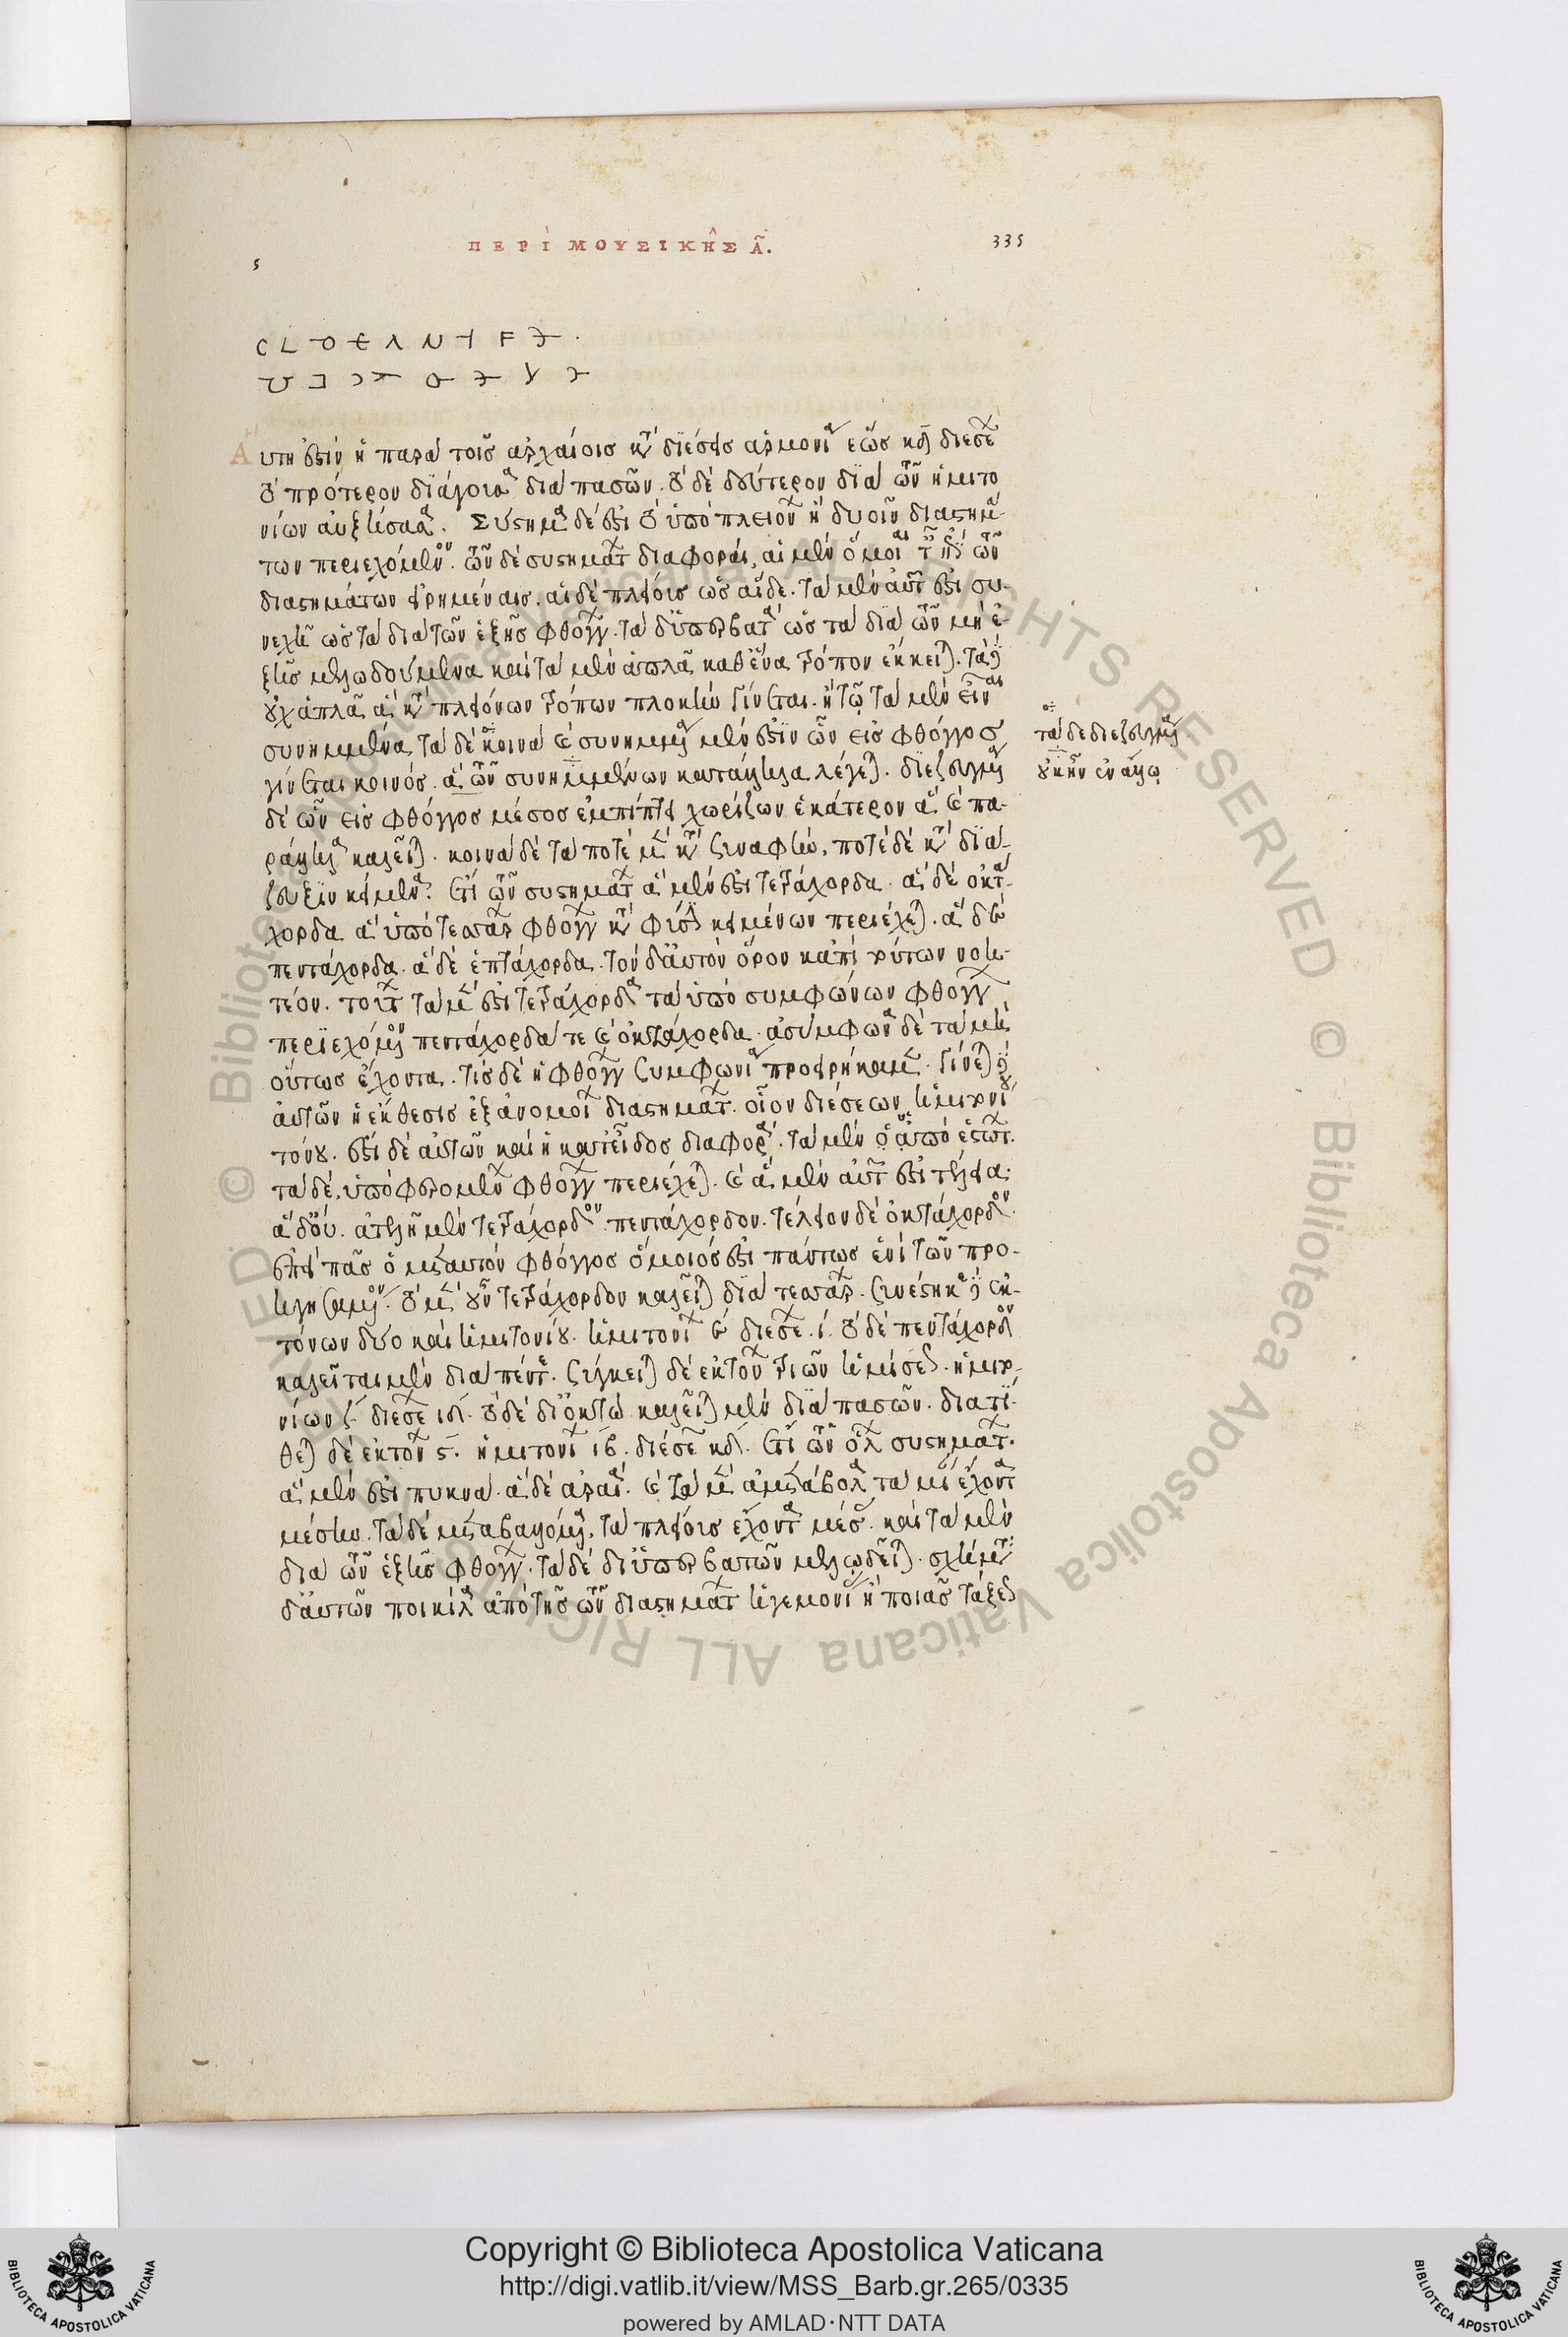 ΠΕΡῚ ΜΟΥΣΙΚΗ̂Σ Α.
335
Αὕτη ἐστὶν ἡ παρὰ τοῖς ἀρχαίοις κατὰ διέσεις ἁρμονία ἕως κδ διέσεων
τὸ πρότερον διάγουσα διὰ πασῶν. τὸ δὲ δεύτερον διὰ τῶν ἡμιτο
νίων αὐξήσασα. Σύστημα δέ ἐστι τὸ ὑπὸ πλειόνων ἢ δυοῖν διαστημά-
των περιεχόμενον. τῶν δὲ συστημάτων διαφοραὶ, αἱ μὲν ὅμοιαι ταῖς ἐπὶ τῶν
διαστημάτων εἰρημέναις. αἱ δὲ πλείοις ὡς αἵδε. τὰ μὲν αὐτῶν ἐστι συ-
νεχῆ ὡς τὰ διὰ τῶν ἑξῆς φθόγγων. τὰ δ' ὑπερβατὰ ὡς τὰ διὰ τῶν μὴ ἐ-
ξῆς μελωδούμενα καὶ τὰ μὲν ἁπλᾶ καθ' ἕνα τρόπον ἔκκειται. τὰ δὲ
οὐχ ἁπλᾶ ἃ κατὰ πλειόνων τρόπων πλοκὴν γίνεται. ἢ τῷ τὰ μὲν εἶναι
συνημμένα τὰ δὲ κοινὰ καὶ συνημμένα μέν ἐστιν ὧν εἷς φθόγγος
γίνεται κοινός. ἃ τῶν συνημμένων κατάλληλα λέγεται. διεζευγμένα
δὲ ὧν εἷς φθόγγος μέσος ἐμπίπτει χωρίζων ἑκάτερον ἃ καὶ πα-
ράλληλα καλεῖται. κοινὰ δὲ τὰ ποτὲ μὲν κατὰ συναφὴν, ποτὲ δὲ κατὰ διά-
ζευξιν κείμενα. ἔτι τῶν συστημάτων ἃ μέν ἐστι τετράχορδα. ἃ δὲ ὀκτά-
χορδα ἃ ὑπὸ τεσσάρων φθόγγων κατὰ φύσιν κειμένων περιέχεται. ἃ δὲ
πεντάχορδα. ἃ δὲ ἑπτάχορδα. τὸν δ' αὐτὸν ὅρον κἀπὶ τούτων νοη-
τέον. τούτων τὰ μέν ἐστι τετράχορδα τὰ ὑπὸ συμφώνων φθόγγων
περιεχόμενα πεντάχορδά τε καὶ ὀκτάχορδα. ἀσύμφωνα δὲ τὰ μὴ
οὕτως ἔχοντα. τίς δὲ ἡ φθόγγων συμφωνία προειρήκαμεν. γίνεται δὲ
αὐτῶν ἡ ἔκθεσις ἐξ ἀνομοίων διαστημάτων. οἷον διέσεων ἡμιτονίου
τόνου. ἔστι δὲ αὐτῶν καὶ ἡ κατ' εἶδος διαφορά. τὰ μὲν ὑπὸ ἑστώτων.
τὰ δὲ, ὑπὸ φερομένων φθόγγων περιέχεται. καὶ ἃ μὲν αὐτῶν ἐστι τέλεια.
ἃ δ' οὔ. ἀτελῆ μὲν τετράχορδον. πεντάχορδον. τέλειον δὲ ὀκτάχορδον.
ἐπεὶ πᾶς ὁ μετ' αὐτὸν φθόγγος ὅμοιός ἐστι πάντως ἑνὶ τῶν προ-
ηγησαμένων. τὸ μὲν οὖν τετράχορδον καλεῖται διὰ τεσσάρων. συνέστηκε δὲ ἐκ
τόνων δύο καὶ ἡμιτονίου. ἡμιτονίων ε διέσεων ι. τὸ δὲ πεντάχορδον
καλεῖται μὲν διὰ πέντε. σύγκειται δὲ ἐκ τόνων τριῶν ἡμίσεος. ἡμιτο-
νίων ζ. διέσεων ιδ. τὸ δὲ δι' ὀκτὼ καλεῖται μὲν διὰ πασῶν. διατί-
θεται δὲ ἐκ τόνων ς. ἡμιτονίων ιβ. διέσεων κδ. ἔτι τῶν ὅλων συστημάτων.
ἃ μέν ἐστι πυκνά. ἃ δὲ ἀραιά. καὶ τὰ μὲν ἀμετάβολα τὰ μίαν ἔχοντα
μέσην. τὰ δὲ μεταβαλλόμενα, τὰ πλείοις ἔχοντα μέσας. καὶ τὰ μὲν
διὰ τῶν ἑξῆς φθόγγων. τὰ δὲ δι' ὑπερβατῶν μελῳδεῖται. σχήματα
δ' αὐτῶν ποικίλα ἀπὸ τῆς τῶν διαστημάτων ἡγεμονίας ἢ ποιᾶς τάξεως
τὰ δὲ διεζευγμένα
οὐκ ἦν ἐν ἄλλῳ
Copyright © Biblioteca Apostolica Vaticana
http://digi.vatlib.it/view/MSS_Barb.gr.265/0335
powered by AMLAD·NTT DATA
BIBLIOTECA APOSTOLICA VATICANA
BIBLIOTECA APOSTOLICA VATICANA
© Biblioteca Apostolica Vaticana ALL RIGHTS RESERVED © Biblioteca Apostolica Vaticana ALL RIGHTS RESERVED